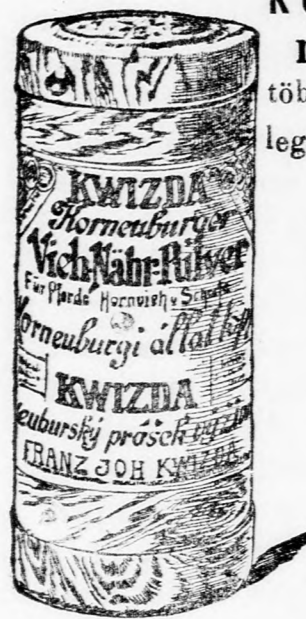 KWIZDA
Korneuburger
Vieh-Nähr-Pulver
Für Pferde Hornvieh u Schafe
Korneuburgi állattáp
KWIZDA
neuburský prášek výživn
FRANZ JOH KWIZDA
K
I
töb
leg